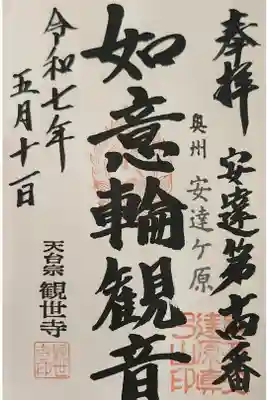 奉拝 安達第番
奥州 安達ケ原
如意輪観音
令和七年
五月十一日
天台宗 観世寺